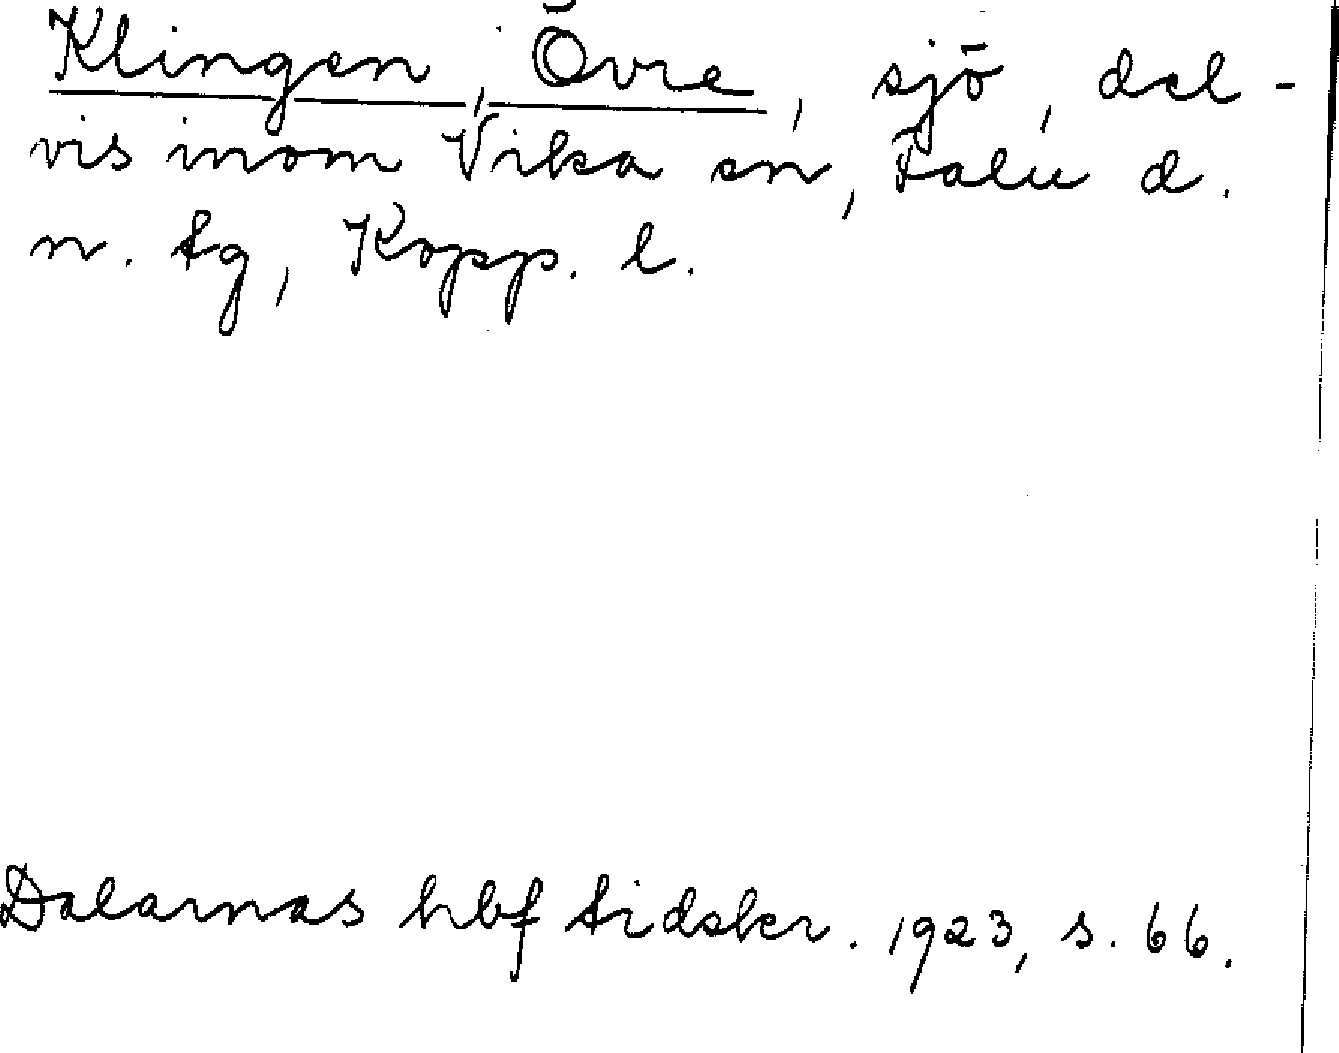 Klingen, Övre, sjö, del-
vis inom Vika sn, Falu d.
n. tg, Kopp. l.
Dalarnas hbf tidskr. 1923, s. 66.